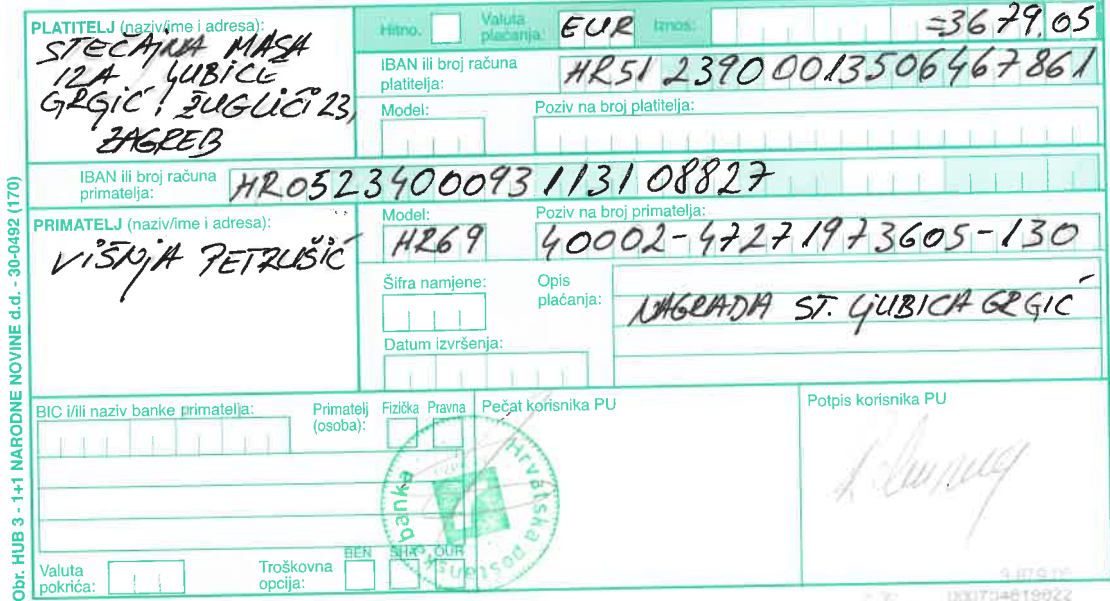 PLATITELJ (naziv/ime i adresa):
STEČAJNA MASA
IZA LJUBICE
GRGIĆ, ŽUGLIĆI 23,
ZAGREB
Hitno:
Valuta plaćanja: EUR
Iznos: =3679,05
IBAN ili broj računa platitelja: HR51 2390 0013506467861
Model:
Poziv na broj platitelja:
IBAN ili broj računa primatelja: HR0523400093113108827
PRIMATELJ (naziv/ime i adresa):
VIŠNJA PETRUŠIĆ
Model: HR69
Poziv na broj primatelja: 40002-47271973605-130
Šifra namjene:
Opis plaćanja: NAGRADA ST. LJUBICA GRGIĆ
Datum izvršenja:
BIC i/ili naziv banke primatelja:
Primatelj (osoba): Fizička Pravna
Pečat korisnika PU
Potpis korisnika PU
Hrvatska poštanska banka
Valuta pokrića:
Troškovna opcija: BEN SHA OUR
Obr. HUB 3 - 1+1 NARODNE NOVINE d.d. - 30-0492 (170)